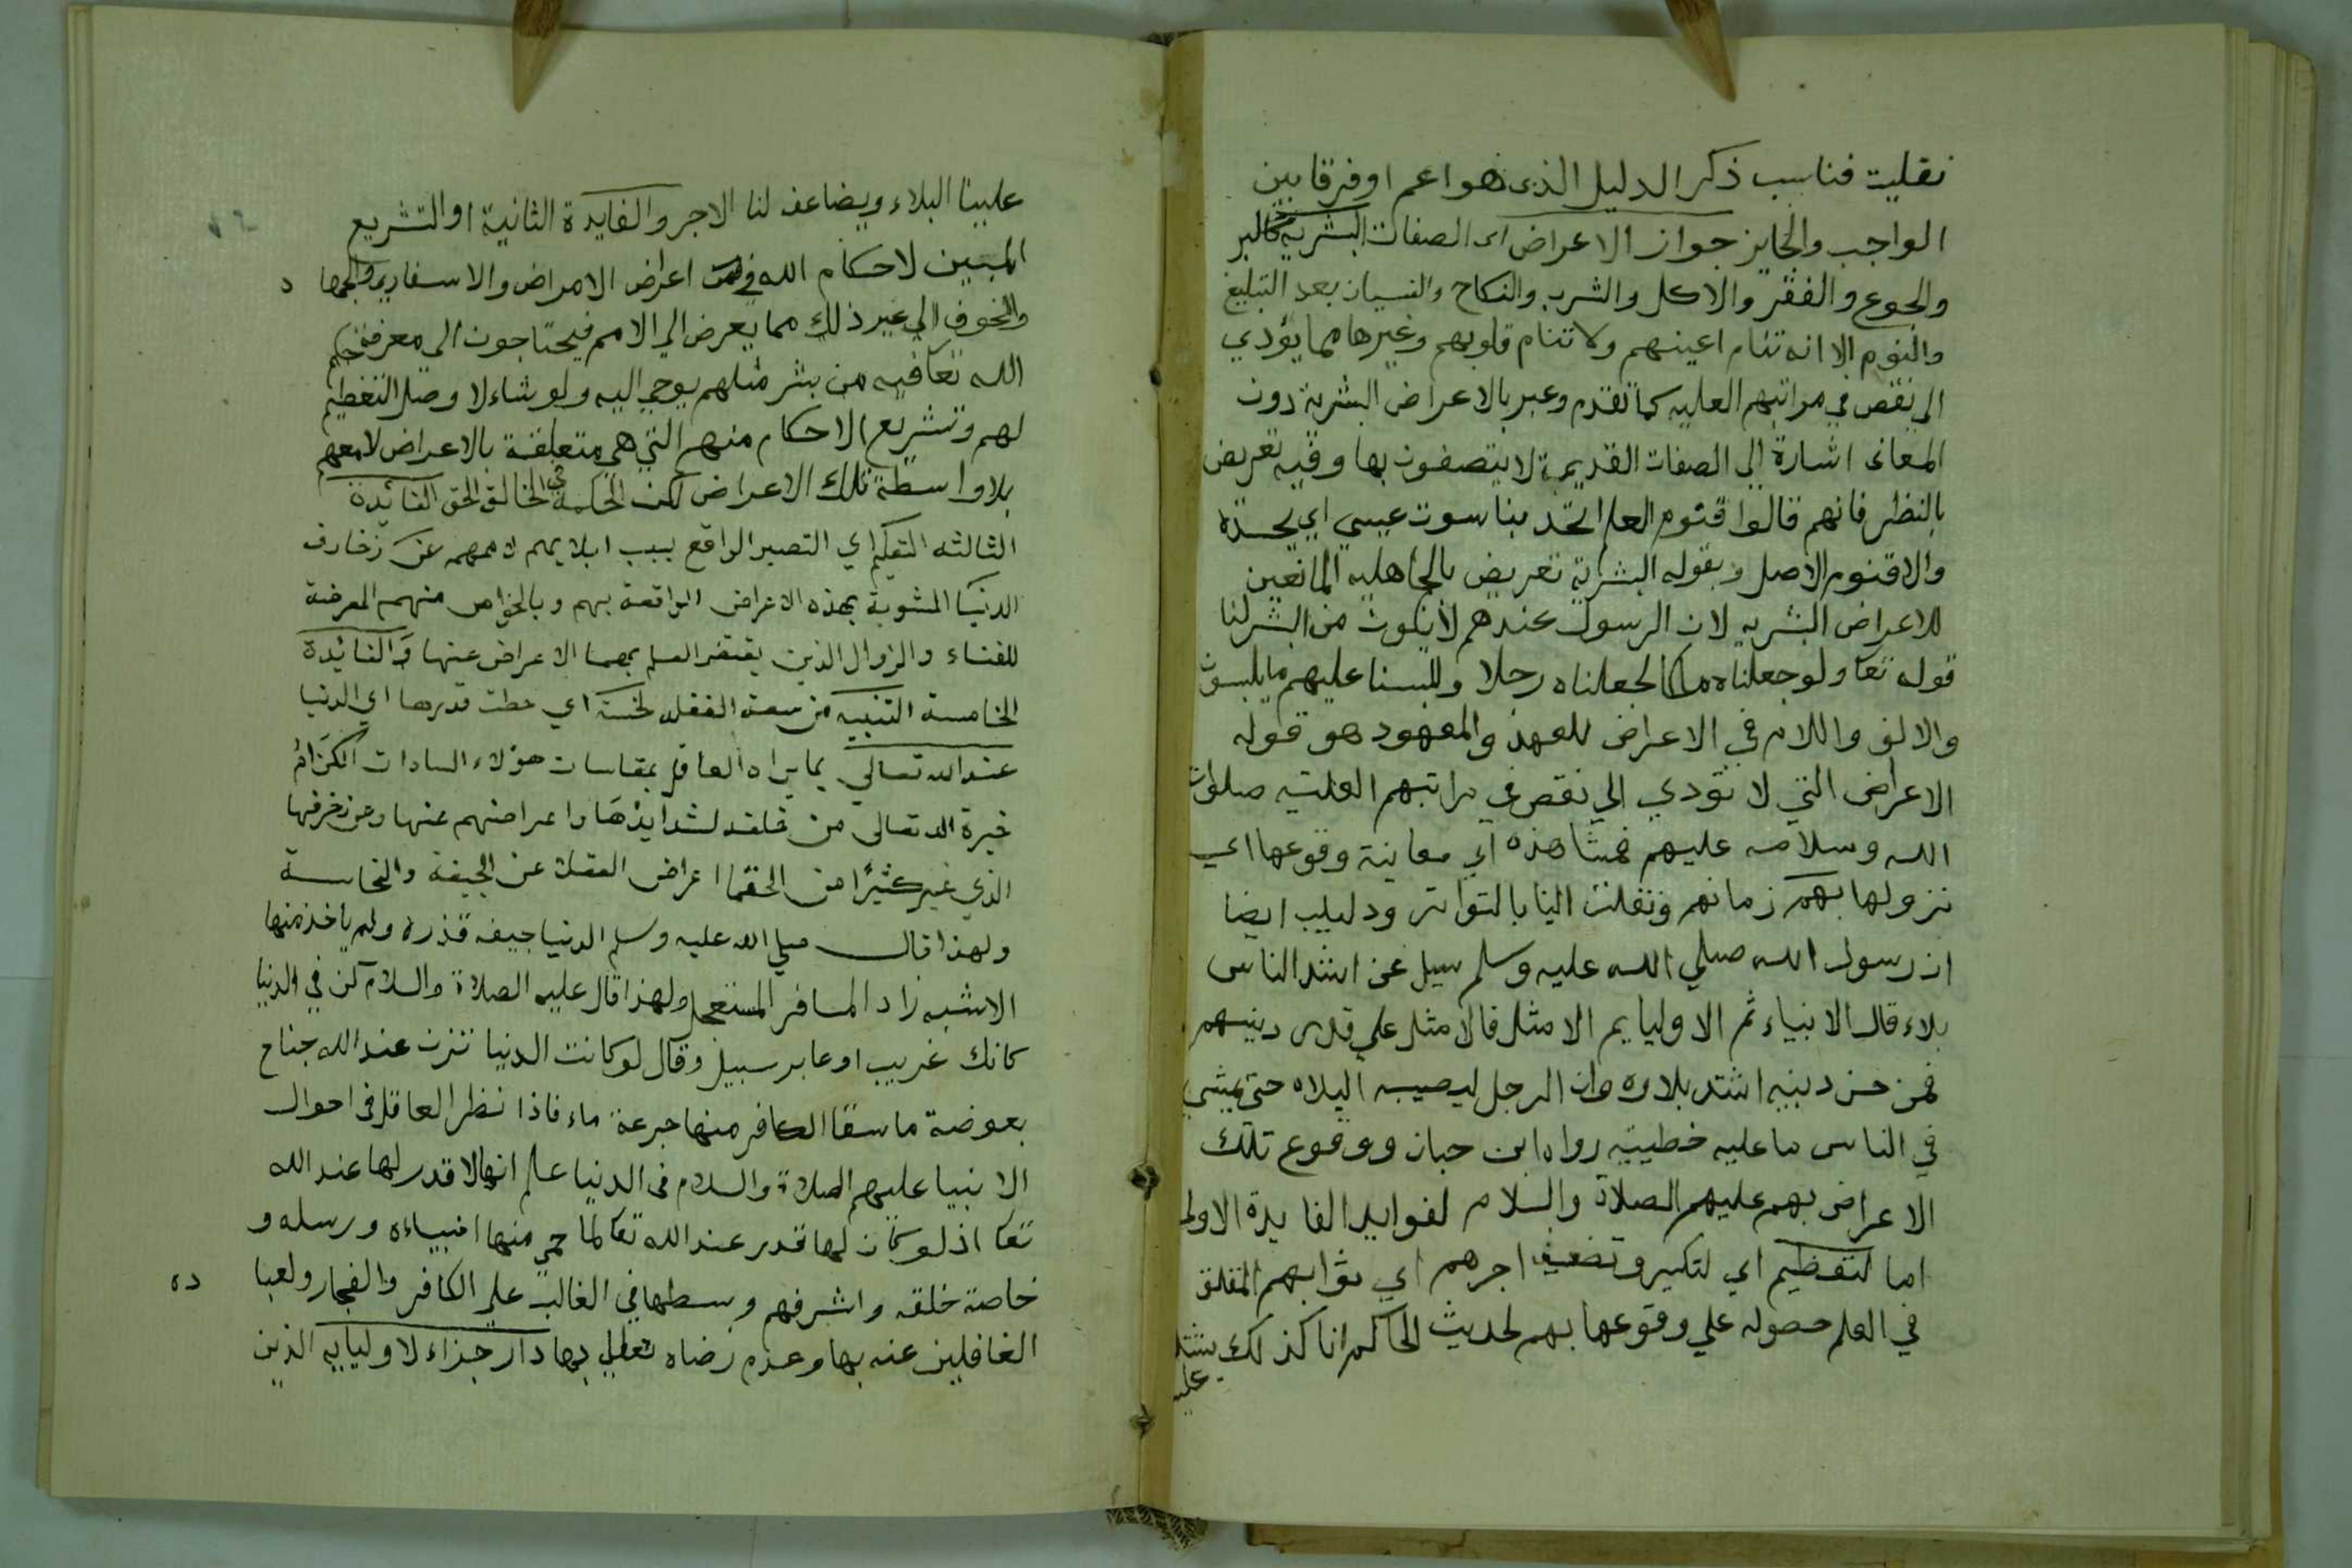 نقليت فناسب ذكر الدليل الذي هو اعم او فرقا بين
الواجب والجايز جواز الاعراض اى الصفات البشرية كالبر
والجوع والفقر والاكل والشرب والنكاح والنسيان بعد التبليغ
والنوم الا انه تنام اعينهم ولا تنام قلوبهم وغيرها مما يؤدي
الى نقص في مراتبهم العليه كما تقدم وعبر بالاعراض البشرية دون
المعانى اشارة الى الصفات القديمة لا يتصفون بها وفيه تعريض
بالنظر فانهم قالوا اقنوم العلم اتحد بناسوت عيسي اي بجسده
والاقنوم الاصل وبقوله البشرية تعريض بالجاهليه المانعين
للاعراض البشريه لان الرسول عندهم لا يكون من البشر لنا
قوله تعا ولو جعلناه ملكا لجعلناه رجلا وللبسنا عليهم ما يلبسون
والالف واللام في الاعراض للعهد والمعهود هو قوله
الاعراض التي لا تؤدي الي نقص في مراتبهم العليه صلوات
الله وسلامه عليهم فمشاهذه اي معاينة وقوعها اي
نزولها بهم زمانهم ونقلت الينا بالتواتر ودليله ايضا
ان رسول الله صلي الله عليه وسلم سيل عن اشد الناس
بلاء قال الانبياء ثم الاوليا يم الامثل فالامثل علي قدر دينهم
فمن حسن دينه اشتد بلاوه وان الرجل ليصيبه البلاء حتى يمشي
في الناس ما عليه خطيئيه رواه ابن حبان ووقوع تلك
الاعراض بهم عليهم الصلاة والسلام لفوايد الفايدة الاولى
اما لتعظيم اي لتكبير وتضعيف اجرهم اي ثوابهم المعلق
في العلم حصوله علي وقوعها بهم لحديث الحاكم انا كذلك يشتد
علينا
علينا البلاء ويضاعف لنا الاجر والفايدة الثانية او التشريع
المبين لاحكام الله في اعراض الامراض والاسفار
والخوف الي غير ذلك مما يعرض الي الامم فيحتاجون الي معرفة حكم
الله تعا فيه من بشر مثلهم يوحي اليه ولو شاء لا وصل التعظيم
لهم وتشريع الاحكام منهم التي هي متعلقة بالاعراض لامعهم
بلا واسطة تلك الاعراض لكن الحكمة في الخالق الحق الفائدة
الثالثه التصبر الواقع بسبب ابلايهم لاممهم عن زخارف
الدنيا المشوبة بهذه الاعراض الواقعة بهم وبالخواص منهم المعرضة
للفناء والزوال الذين يقتضر العلم بهما الاعراض عنها والفائدة
الخامسة التنبيه من سعة الغفلة لخسة اي حطت قدرها اي الدنيا
عند الله تعالي بما يراه العاقل بمقاسات هؤلاء السادات الكرام
خيرة الله تعالى من خلقه لشدايدها واعراضهم عنها وعن زخرفها
الذي غير كثيرا من الحقما اعراض العقلا عن الجيفة والنجاسة
ولهذا قال صلي الله عليه وسلم الدنيا جيفه قذرة ولم ياخذ منها
الا شبه زاد المسافر المستعجل ولهذا قال عليه الصلاة والسلام كن في الدنيا
كانك غريب او عابر سبيل وقال لو كانت الدنيا تزن عند الله جناح
بعوضة ما سقا الكافر منها جرعة ماء فاذا نظر العاقل في احوال
الانبيا عليهم الصلاة والسلام في الدنيا علم انها لا قدر لها عند الله
تعا اذ لو كان لها قدر عند الله تعا لما حمي منها انبياءه ورسله و
خاصة خلقه واشرفهم وبسطها في الغالب علي الكافر والفجار ولعبا
الغافلين عنه بها وعدم رضاه تعالى بها دار جزاء لاوليايه الذين